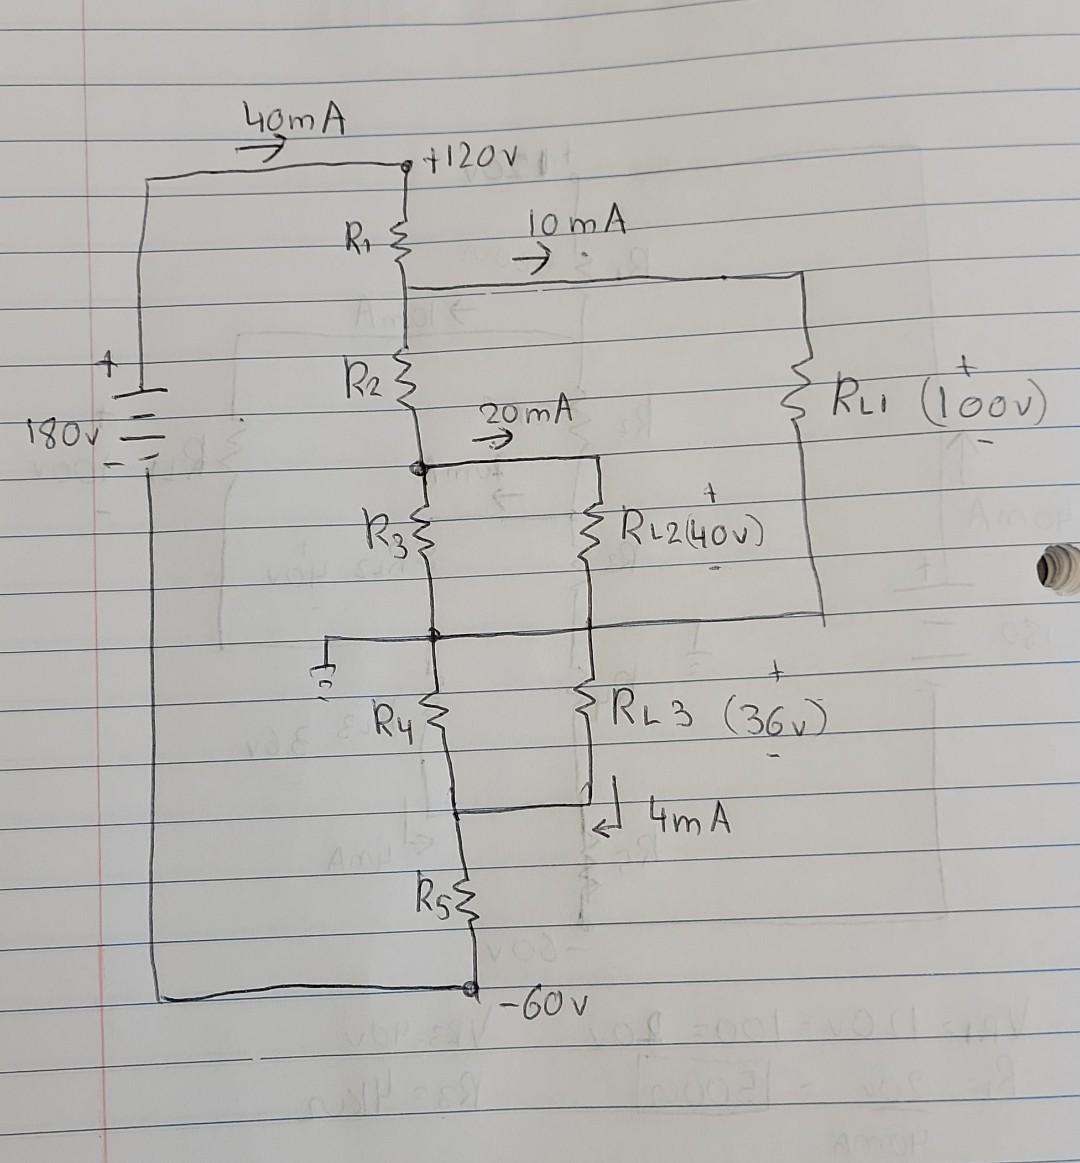 40mA
+120v
R1
10mA
+
R2
180v
-
20mA
+
RL1 (100v)
-
+
R3
RL2(40v)
-
+
R4
RL3 (36v)
-
4mA
R5
-60v